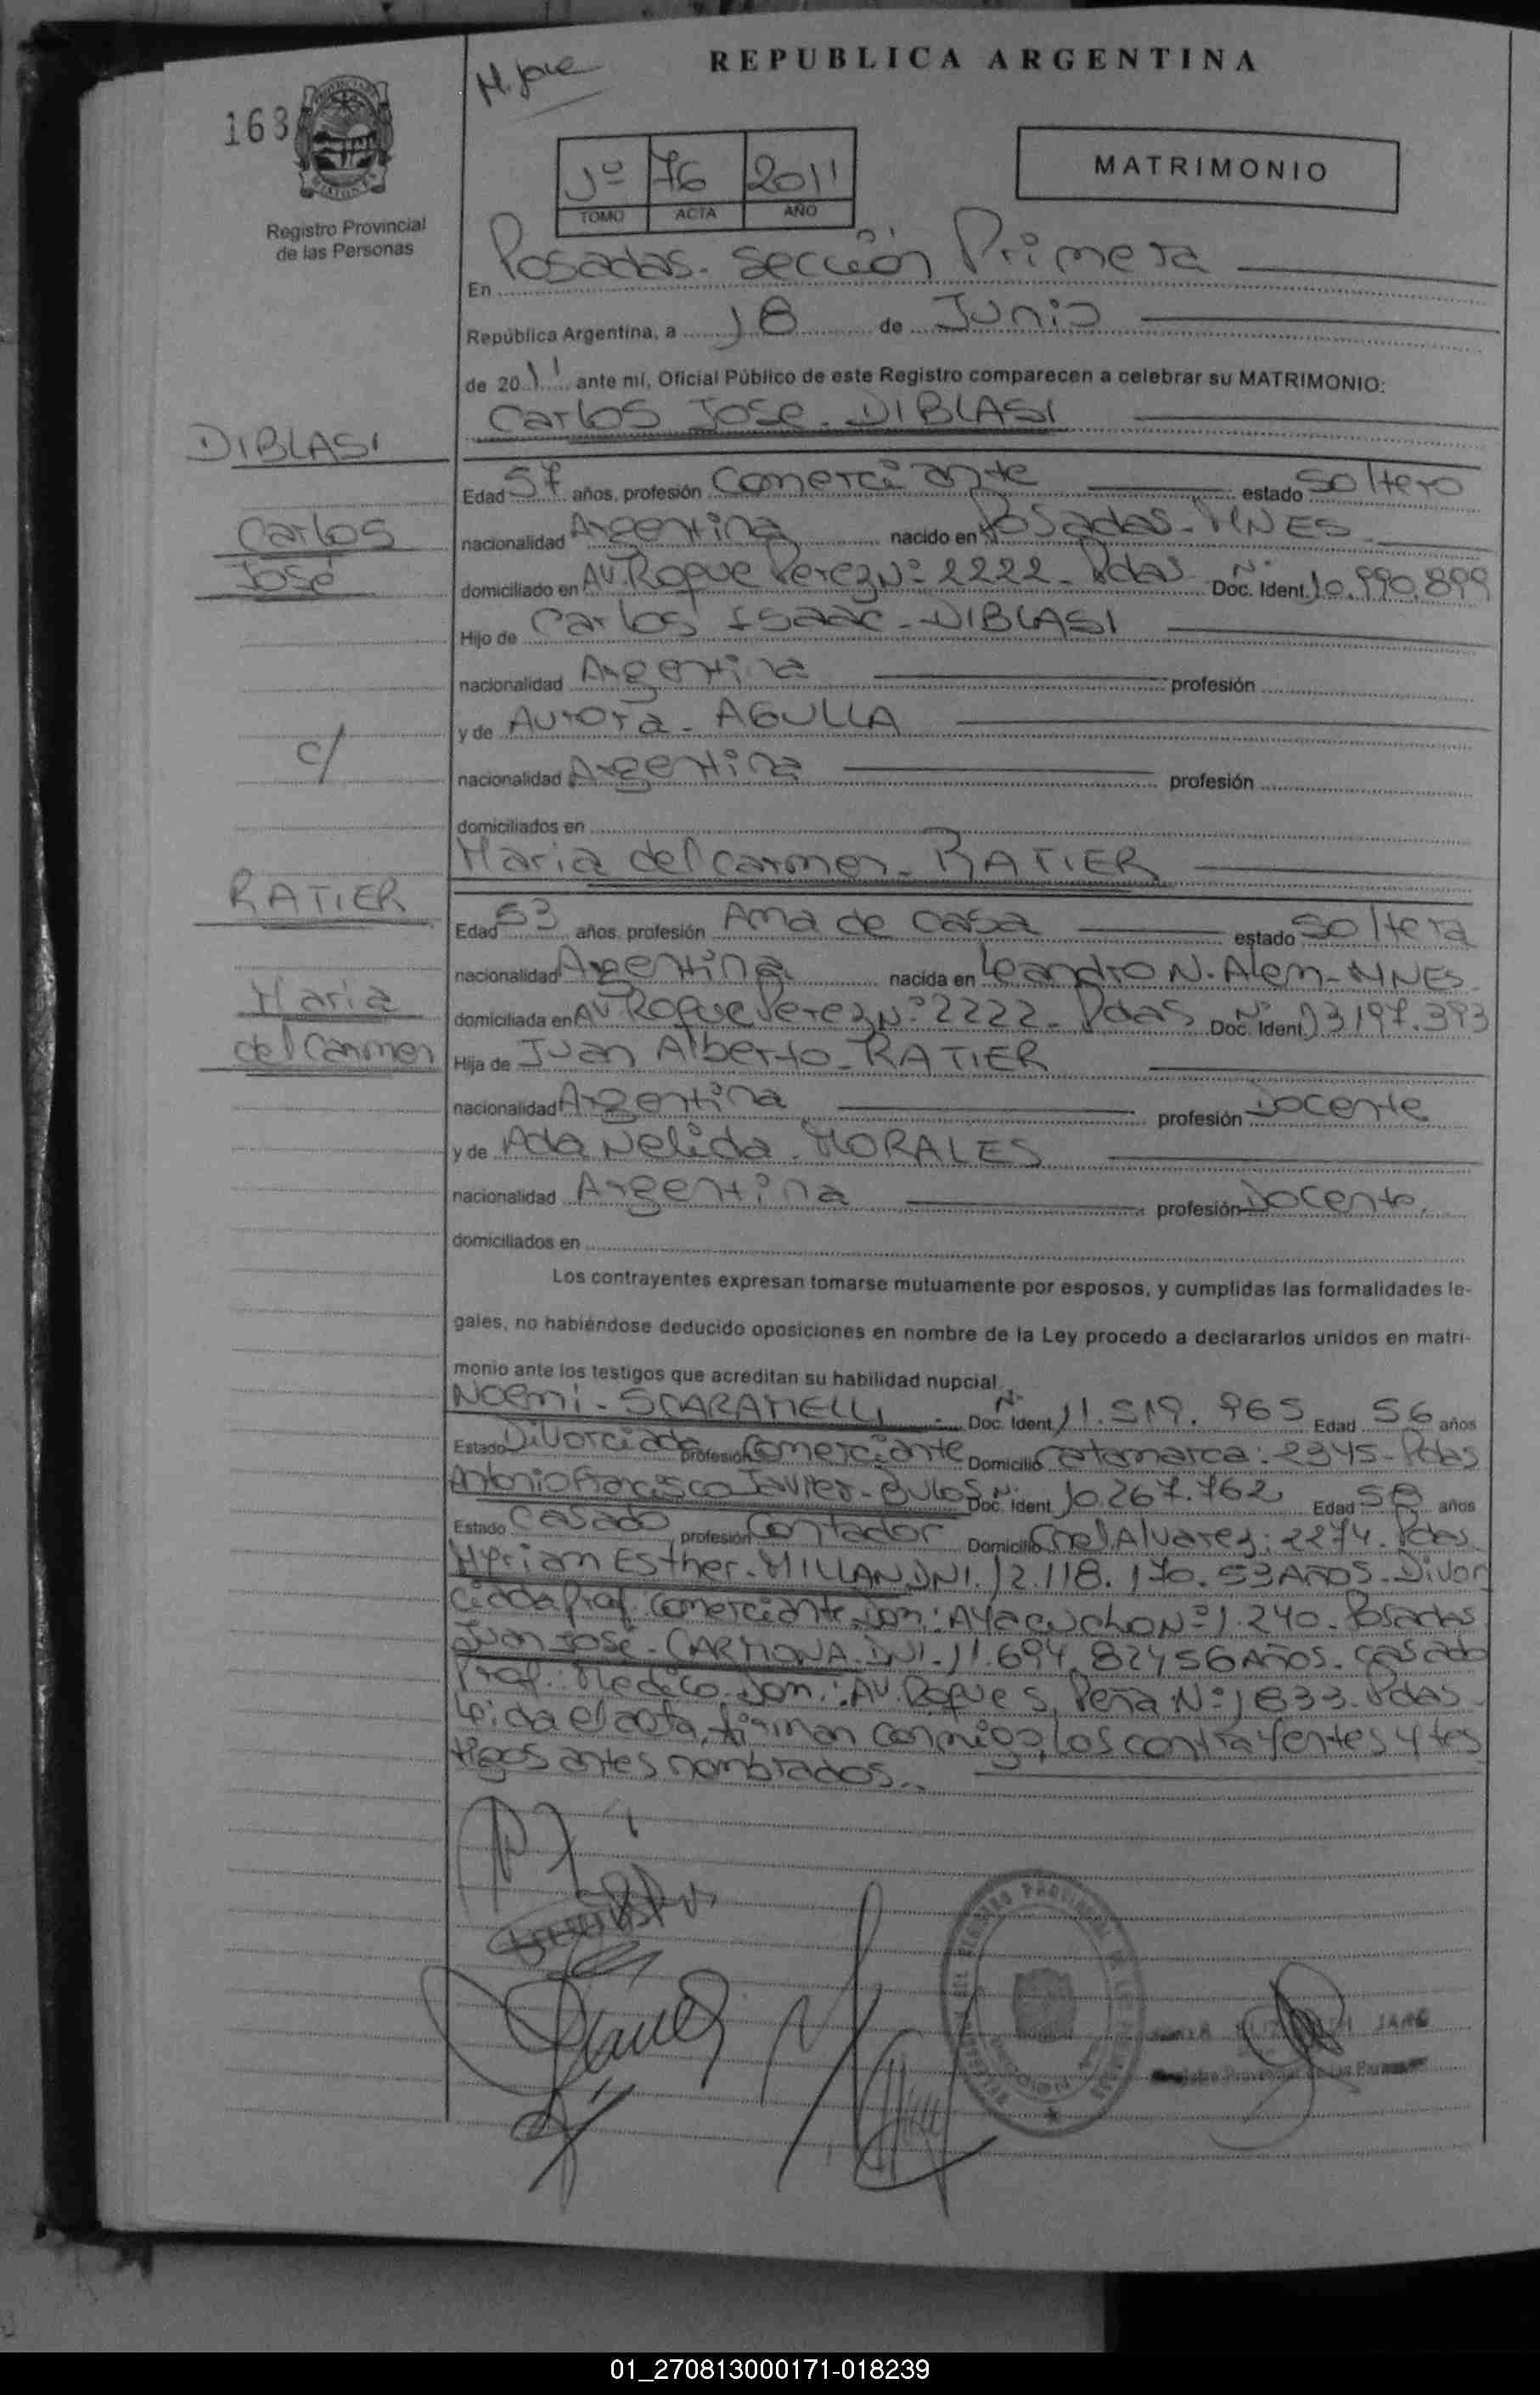 REPUBLICA ARGENTINA
M. José
163
1º 76 2011
TOMO ACTA AÑO
MATRIMONIO
Registro Provincial
de las Personas
En Posadas. Sección Primera
República Argentina, a 18 de Junio
de 2011 ante mí, Oficial Público de este Registro comparecen a celebrar su MATRIMONIO:
Carlos José. DIBLASI
DIBLASI
Edad 57 años, profesión Comerciante estado Soltero
Carlos
nacionalidad Argentina nacido en Posadas - MNES
José
domiciliado en AV. Roque Perez Nº 2222 - Pdas Doc. Ident. Nº 10.990.899
Hijo de Carlos Isaac - DIBLASI
nacionalidad Argentina profesión
y de Aurora - AGULLA
c/
nacionalidad Argentina profesión
domiciliados en
Maria del Carmen - RATIER
RATIER
Edad 53 años, profesión Ama de casa estado Soltera
nacionalidad Argentina nacida en Leandro N. Alem - MNES
Maria
domiciliada en AV. Roque Perez Nº 2222 - Pdas Doc. Ident. Nº 13197.393
del Carmen
Hija de Juan Alberto - RATIER
nacionalidad Argentina profesión Docente
y de Ada Nelida. MORALES
nacionalidad Argentina profesión Docente
domiciliados en
Los contrayentes expresan tomarse mutuamente por esposos, y cumplidas las formalidades le-
gales, no habiéndose deducido oposiciones en nombre de la Ley procedo a declararlos unidos en matri-
monio ante los testigos que acreditan su habilidad nupcial
Noemi - SCARAMELLI - Doc. Ident. Nº 11.519.965 Edad 56 años
Estado Divorciada profesión Comerciante Domicilio Catamarca: 2345 - Pdas
Antonio Francisco Javier - BULOS Doc. Ident. Nº 10.267.762 Edad 58 años
Estado Casado profesión Contador Domicilio Cnel. Alvarez: 2274. Pdas.
Myriam Esther - MILLAN DNI. 12.118.170. 53 AÑOS - Divor
ciada Prof. Comerciante Dom: Ayacucho Nº 1.240 - Posadas
Juan José - CARMONA. DNI - 11.694.824 56 AÑOS. Casado
Prof: Medico. Dom: AV. Roque S. Peña Nº 1833. Pdas -
Leida el acta, firman conmigo, los contrayentes y tes
tigos antes nombrados..
01_270813000171-018239